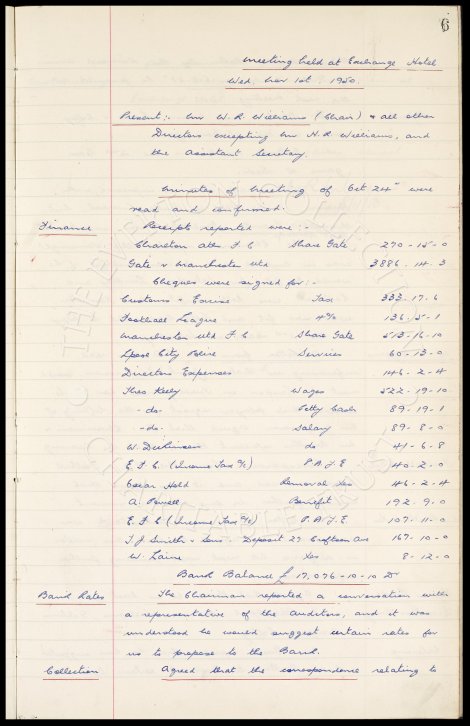 6
Meeting held at Exchange Hotel
Wed. Nov 1st. 1950.
Present:- Mr W. R. Williams (Chair) & all other
Directors excepting Mr H. R. Williams, and
the Assistant Secretary.
Minutes of meeting of Oct 24th were
read and confirmed.
Finance Receipts reported were :-
Charlton Ath F. C Share Gate 270-15-0
Gate v Manchester Utd 3886.14.3
Cheques were signed for:-
Customs & Excise Tax 333.17.6
Football League 4% 136.5-1
Manchester Utd F. C Share Gate 513-16-10
Lpool City Police Services 60-13-0
Directors Expenses 146-2-4
Theo Kelly Wages 522-19-10
-do- Petty Cash 89-19-1
-do- Salary 89-8-0
W. Dickinson do 41-6-8
E. F. C. (Income Tax a/c) P.A.Y.E 40-2-0
Oscar Hold Removal Xes 46-2-4
A. Powell Benefit 192-9-0
E. F. C (Income Tax a/c) P.A.Y.E. 107-11-0
T. J. Smith & Sons Deposit 27 Croftson Ave 167-10-0
W. Laine Xes 8-12-0
Bank Balance £17,076-10-10 Dr
Bank Rates The Chairman reported a conversation with
a representative of the auditors, and it was
understood he would suggest certain rates for
us to propose to the Bank.
Collection Agreed that the correspondence relating to
THE EVERTON COLLECTION
CHARITABLE TRUST